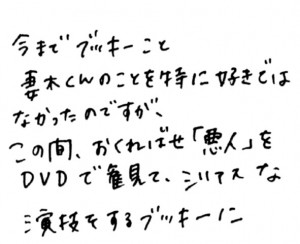 今まで ブッキーこと
妻木くんのことを特に好きでは
なかったのですが、
この間、おくればせ「悪人」を
DVDで観見て、シリアスな
演技をするブッキーに